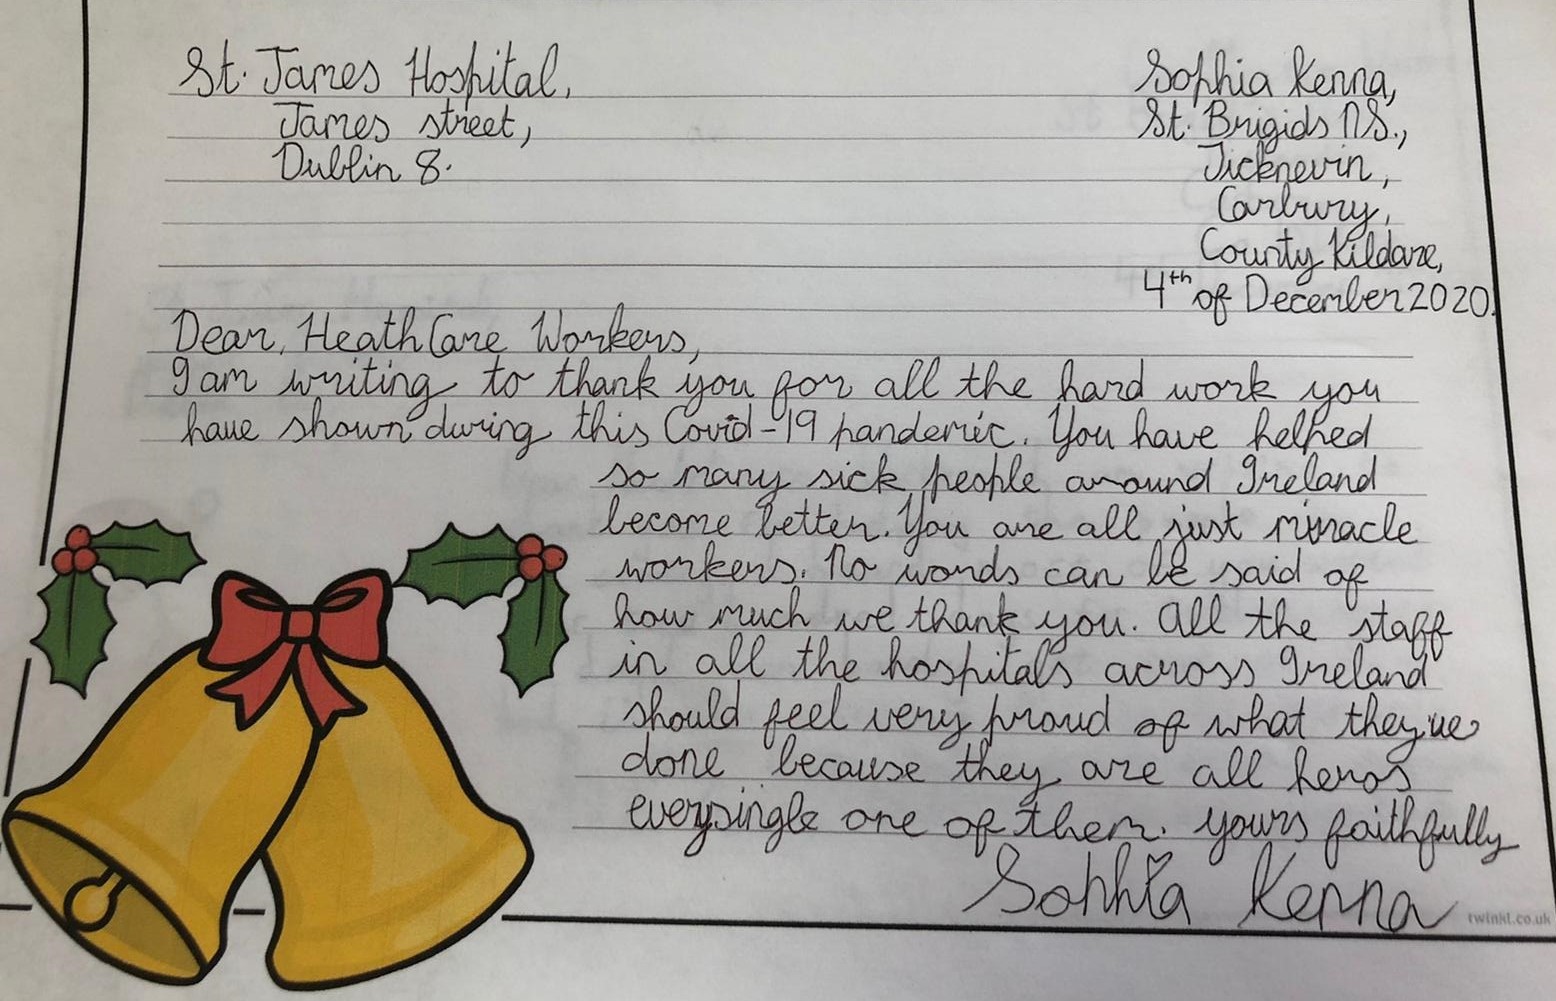 St. James Hospital,
James street,
Dublin 8.
Sophia Kenna,
St. Brigids NS.,
Ticknevin,
Carbury,
County Kildare,
4th of December 2020.
Dear, Heath Care Workers,
I am writing to thank you for all the hard work you
have shown during this Covid-19 pandemic. You have helped
so many sick people around Ireland
become better. You are all just miracle
workers. No words can be said of
how much we thank you. All the staff
in all the hospitals across Ireland
should feel very proud of what they've
done because they are all heros
everysingle one of them. yours faithfully
Sophia Kenna
twinkl.co.uk